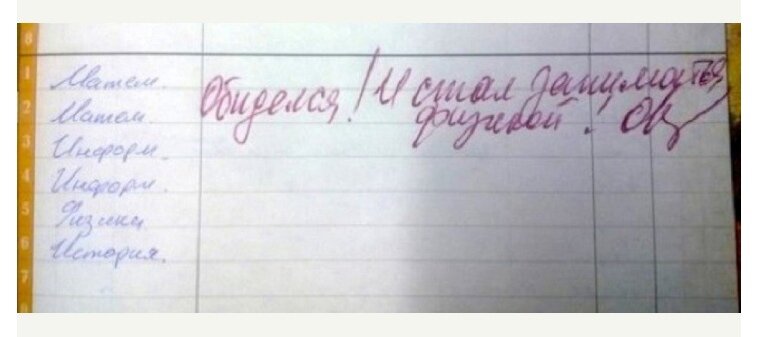 8
1 Матем. Обиделся! И стал заниматься
2 Матем. физикой!
3 Информ.
4 Информ.
5 Физика
6 История.
7